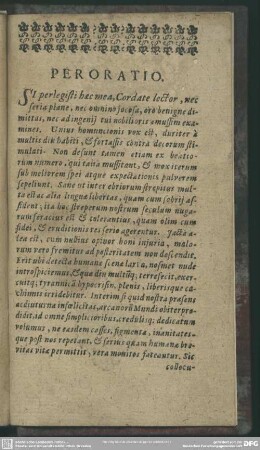 PERORATIO.
SI perlegisti hæc mea, Cordate lector, nec
seria plane, nec omnino jocosa, oro benigne di-
mittas, nec ad ingenij tui nobilioris amussim exa-
mines. Unius homuncionis vox est, duriter à
multis diu habiti, & fortassis contra decorum sti-
mulati. Non desunt tamen etiam ex beatio-
rum numero, qui talia mussitant, & mox iterum
sub meliorum spei atque expectationis pulverem
sepeliunt. Sane ut inter ebrios um strepitus mul-
to est ac alia lingua libertas, quam cum sobrij as-
sident, ita hoc streperum nostrum seculum nuga-
rum feracius est & tolerantius, quam olim cum
fidei, & eruditionis res serio agerentur. Jacta a-
lea est, cum nullius optime boni injuria, malo-
rum vero fremitus ad posteritatem non descendit.
Erit ubi detecta humana scena larva, nosmet nude
introspiciemus, & quæ din multumq; terrese it, exer-
cuitq; tyrannis, & hypocrisin. plenis, libe isque ca-
chinnis irridebitur. Interim si quid nostra præsens
ac diuturna infælicitas, arcanorum Mundi obiter pro-
didit, id omne simplicioribus, credulisq; dedicatum
volumus, ne easdem cosses, figmenta, inanitates-
que post nos repetant, & serius quam humana bre-
vitas vitæ permittit, vera monitos fateantur. Sic
collocu-